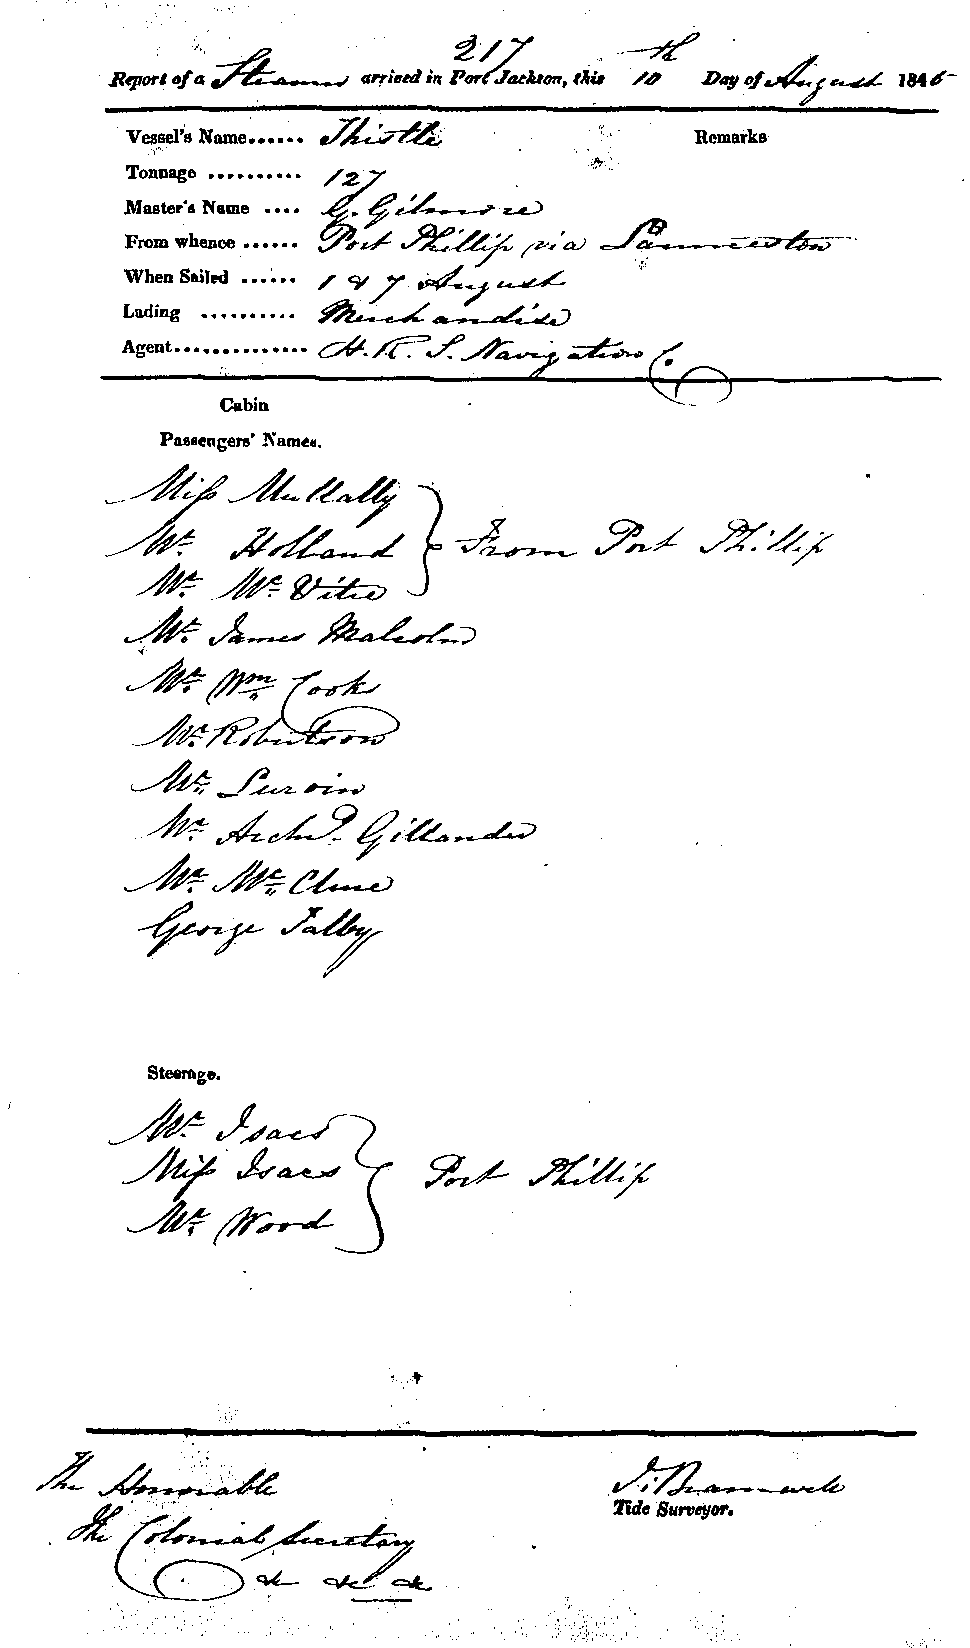 217
Report of a Steamer arrived in Port Jackson, this 10th Day of August 1845
Vessel's Name...... Thistle Remarks
Tonnage .......... 127
Master's Name .... G. Gilmore
From whence ...... Port Phillip via Launceston
When Sailed ...... 1 & 7 August
Lading .......... Merchandise
Agent.............. H. R. S. Navigation Co.
Cabin
Passengers' Names.
Miss Mullally
Mr. Holland } From Port Phillip
Mr. Mc. Vitie
Mr. James Malcolm
Mr. Wm. Cooks
Mr. Robertson
Mr.
Mr. Archd. Gillander
Mr. Mc. Clure
George Talby
Steerage.
Mr. Isacs
Miss Isacs } Port Phillip
Mr. Wood
The Honorable
The Colonial Secretary
&c &c &c
Tide Surveyor.